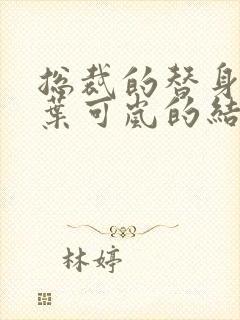 总裁的替身
葉可嵐的結
林婷